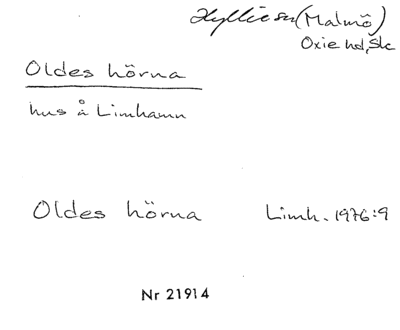 Hyllie sn (Malmö)
Oxie hd, Sk
Oldes hörna
hus å Limhamn
Oldes hörna Limh. 1976:9
Nr 21914